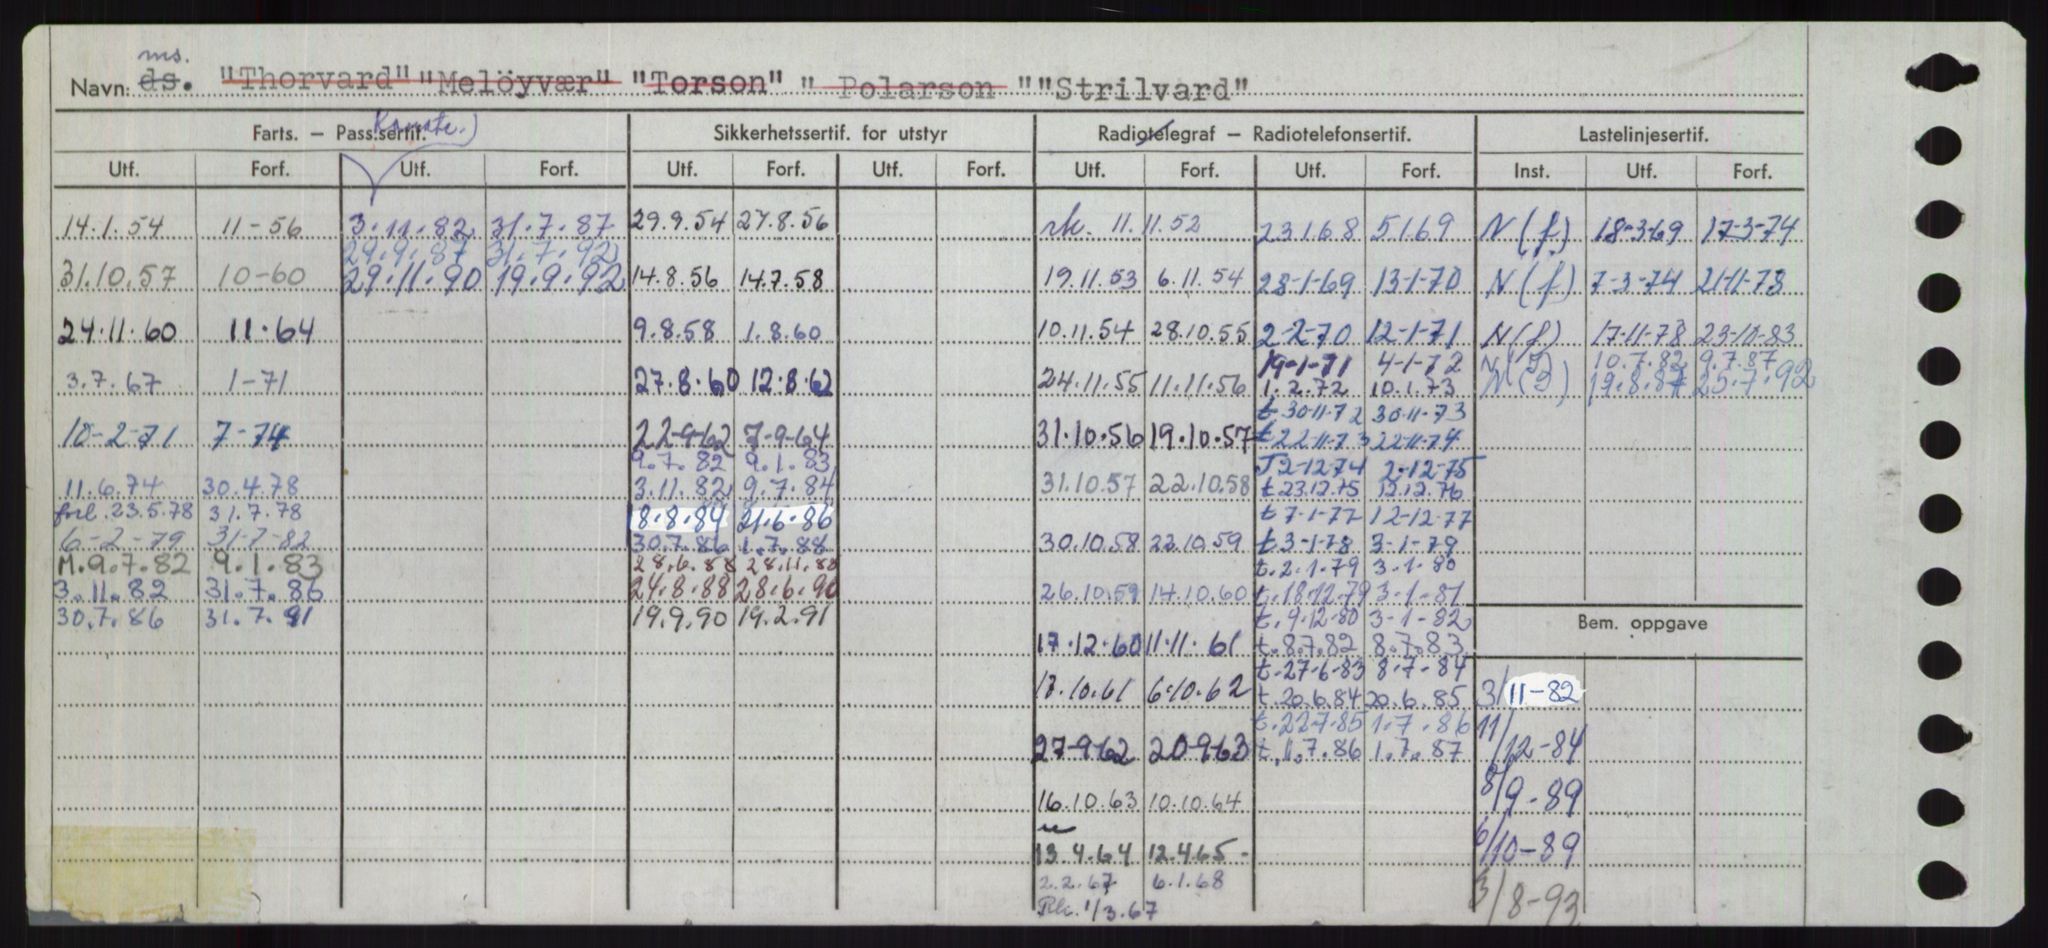 ms.
Navn: ds. "Thorvard" "Melöyvær" "Torson" " Polarson " "Strilvard"
Farts. – Pass.sertif. Sikkerhetssertif. for utstyr Radiotelegraf – Radiotelefonsertif. Lastelinjesertif.
Utf. Forf. Utf. Forf. Utf. Forf. Utf. Forf. Utf. Forf. Utf. Forf. Inst. Utf. Forf.
14.1.54 11-56 3.11.82 31.7.87 29.9.54 27.8.56 rk. 11.11.52 23168 5169 N (f) 18-3-69 17-3-74
29.9.87 31.7.92
31.10.57 10-60 29.11.90 19.9.92 14.8.56 14.7.58 19.11.53 6.11.54 28-1-69 13-1-70 N (f) 7-3-74 21-11-78
24.11.60 11.64 9.8.58 1.8.60 10.11.54 28.10.55 2-2-70 12-1-71 N (f) 17-11-78 23-10-83
19-1-71 4-1-72 10.7.82 9.7.87
3.7.67 1-71 27.8.60 12.8.62 24.11.55 11.11.56 1.2.72 10.1.73 19.8.87 25.7.92
t.30-11-72 30-11-73
18-2-71 7-74 22-9-62 7-9-64 31.10.56 19.10.57 t.22-11-73 22-11-74
9.7.82 9.1.83 T2-12-74 2-12-75
11.6.74 30.4.78 3.11.82 9.7.84 31.10.57 22.10.58 t.23.12.75 12.12.76
forl. 23.5.78 31.7.78 8.8.84 21.6.86 t.7-1-77 12-12-77
6-2-79 31-7-82 30.7.86 1.7.88 30.10.58 22.10.59 t.3-1-78 3-1-79
M.9.7.82 9.1.83 28.6.88 28.11.88 t.2.1.79 3.1.80
3.11.82 31.7.86 24.8.88 28.6.90 26.10.59 14.10.60 t.18.12.79 3-1-81
30.7.86 31.7.91 19.9.90 19.2.91 t.9.12.80 3-1-82 Bem. oppgave
17.12.60 11.11.61 t.8.7.82 8.7.83
t.27-6-83 8-7-84
13.10.61 6.10.62 t.20.6.84 20.6.85 3/11-82
t.22.7.85 1.7.86
27-9-62 20-9-63 t.1.7.86 1.7.87 11/12-84
16.10.63 10.10.64 8/9-89
13.4.64 12.4.65 - 6/10-89
2.2.67 6.1.68
1/3.67 3/8-93